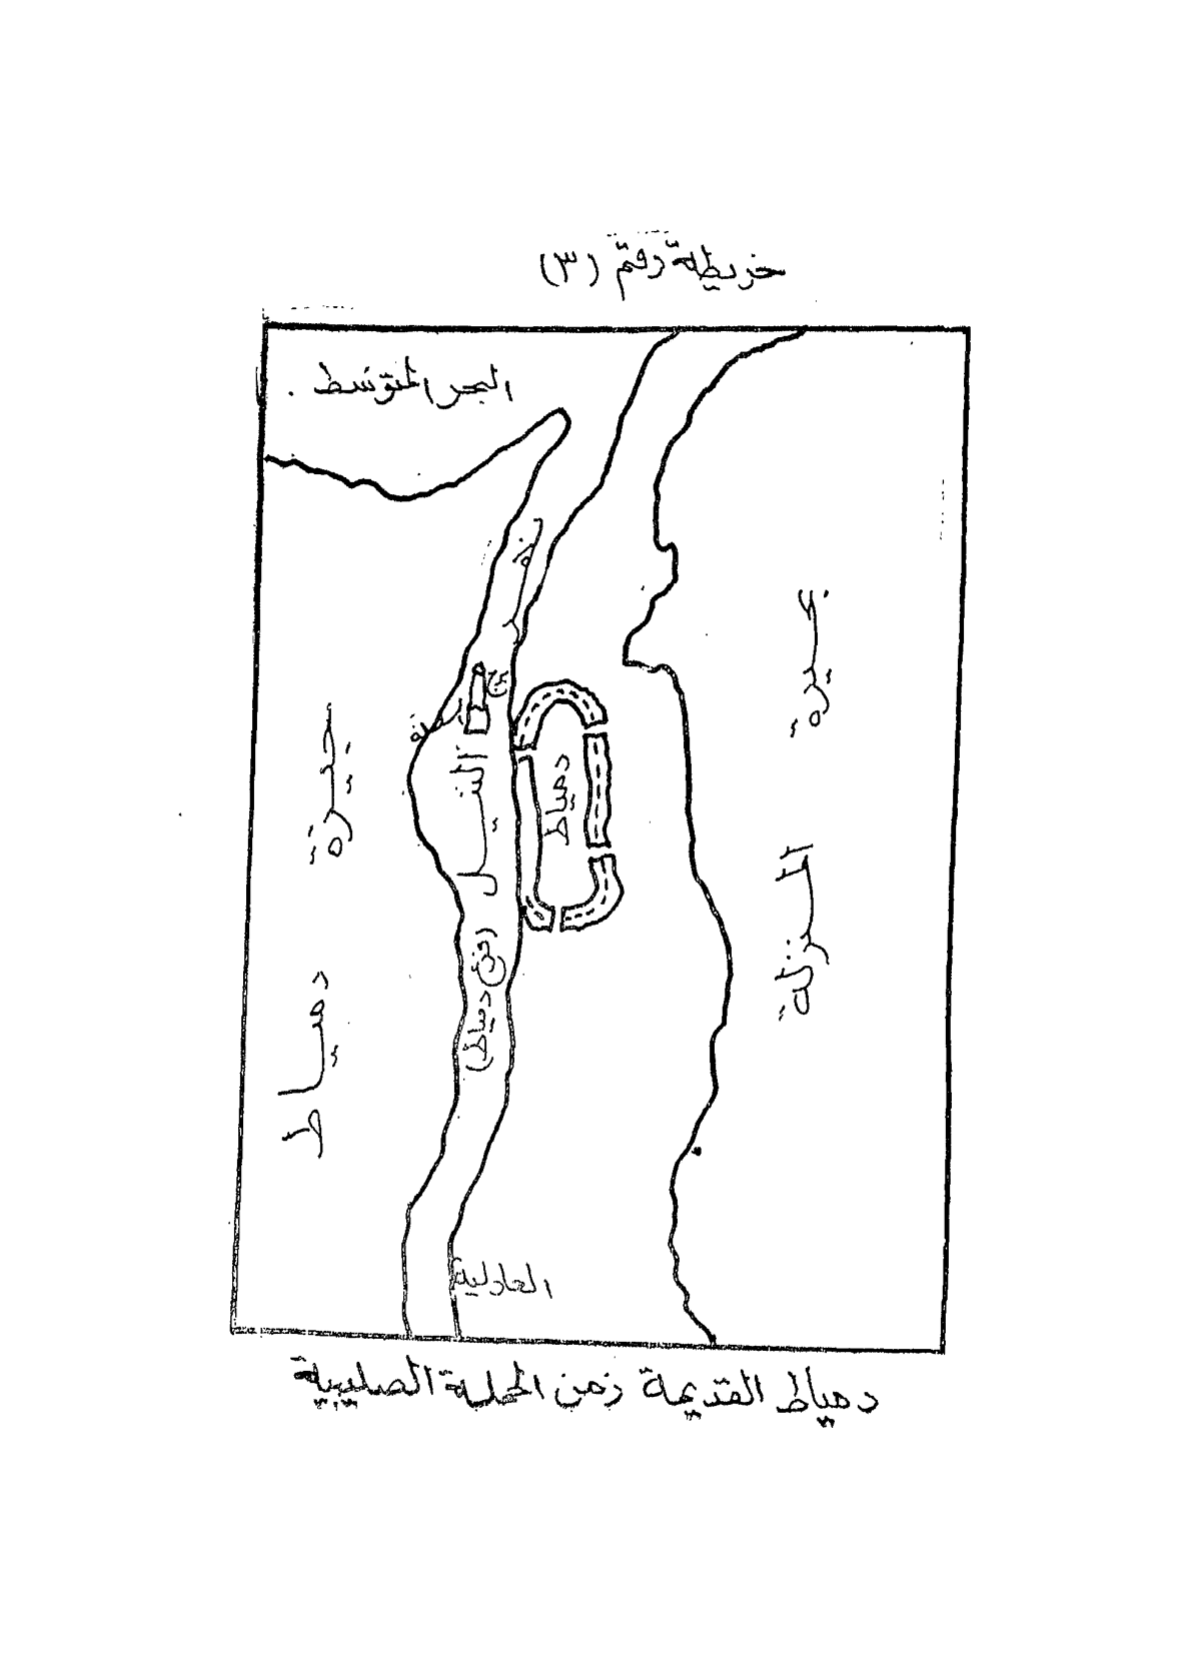 خريطة رقم (٣)
البحر المتوسط
نهر
النيل
(فرع دمياط)
برج
السلسلة
دمياط
جيزة
دمياط
بحيرة
المنزلة
العادلية
دمياط القديمة زمن الحملة الصليبية